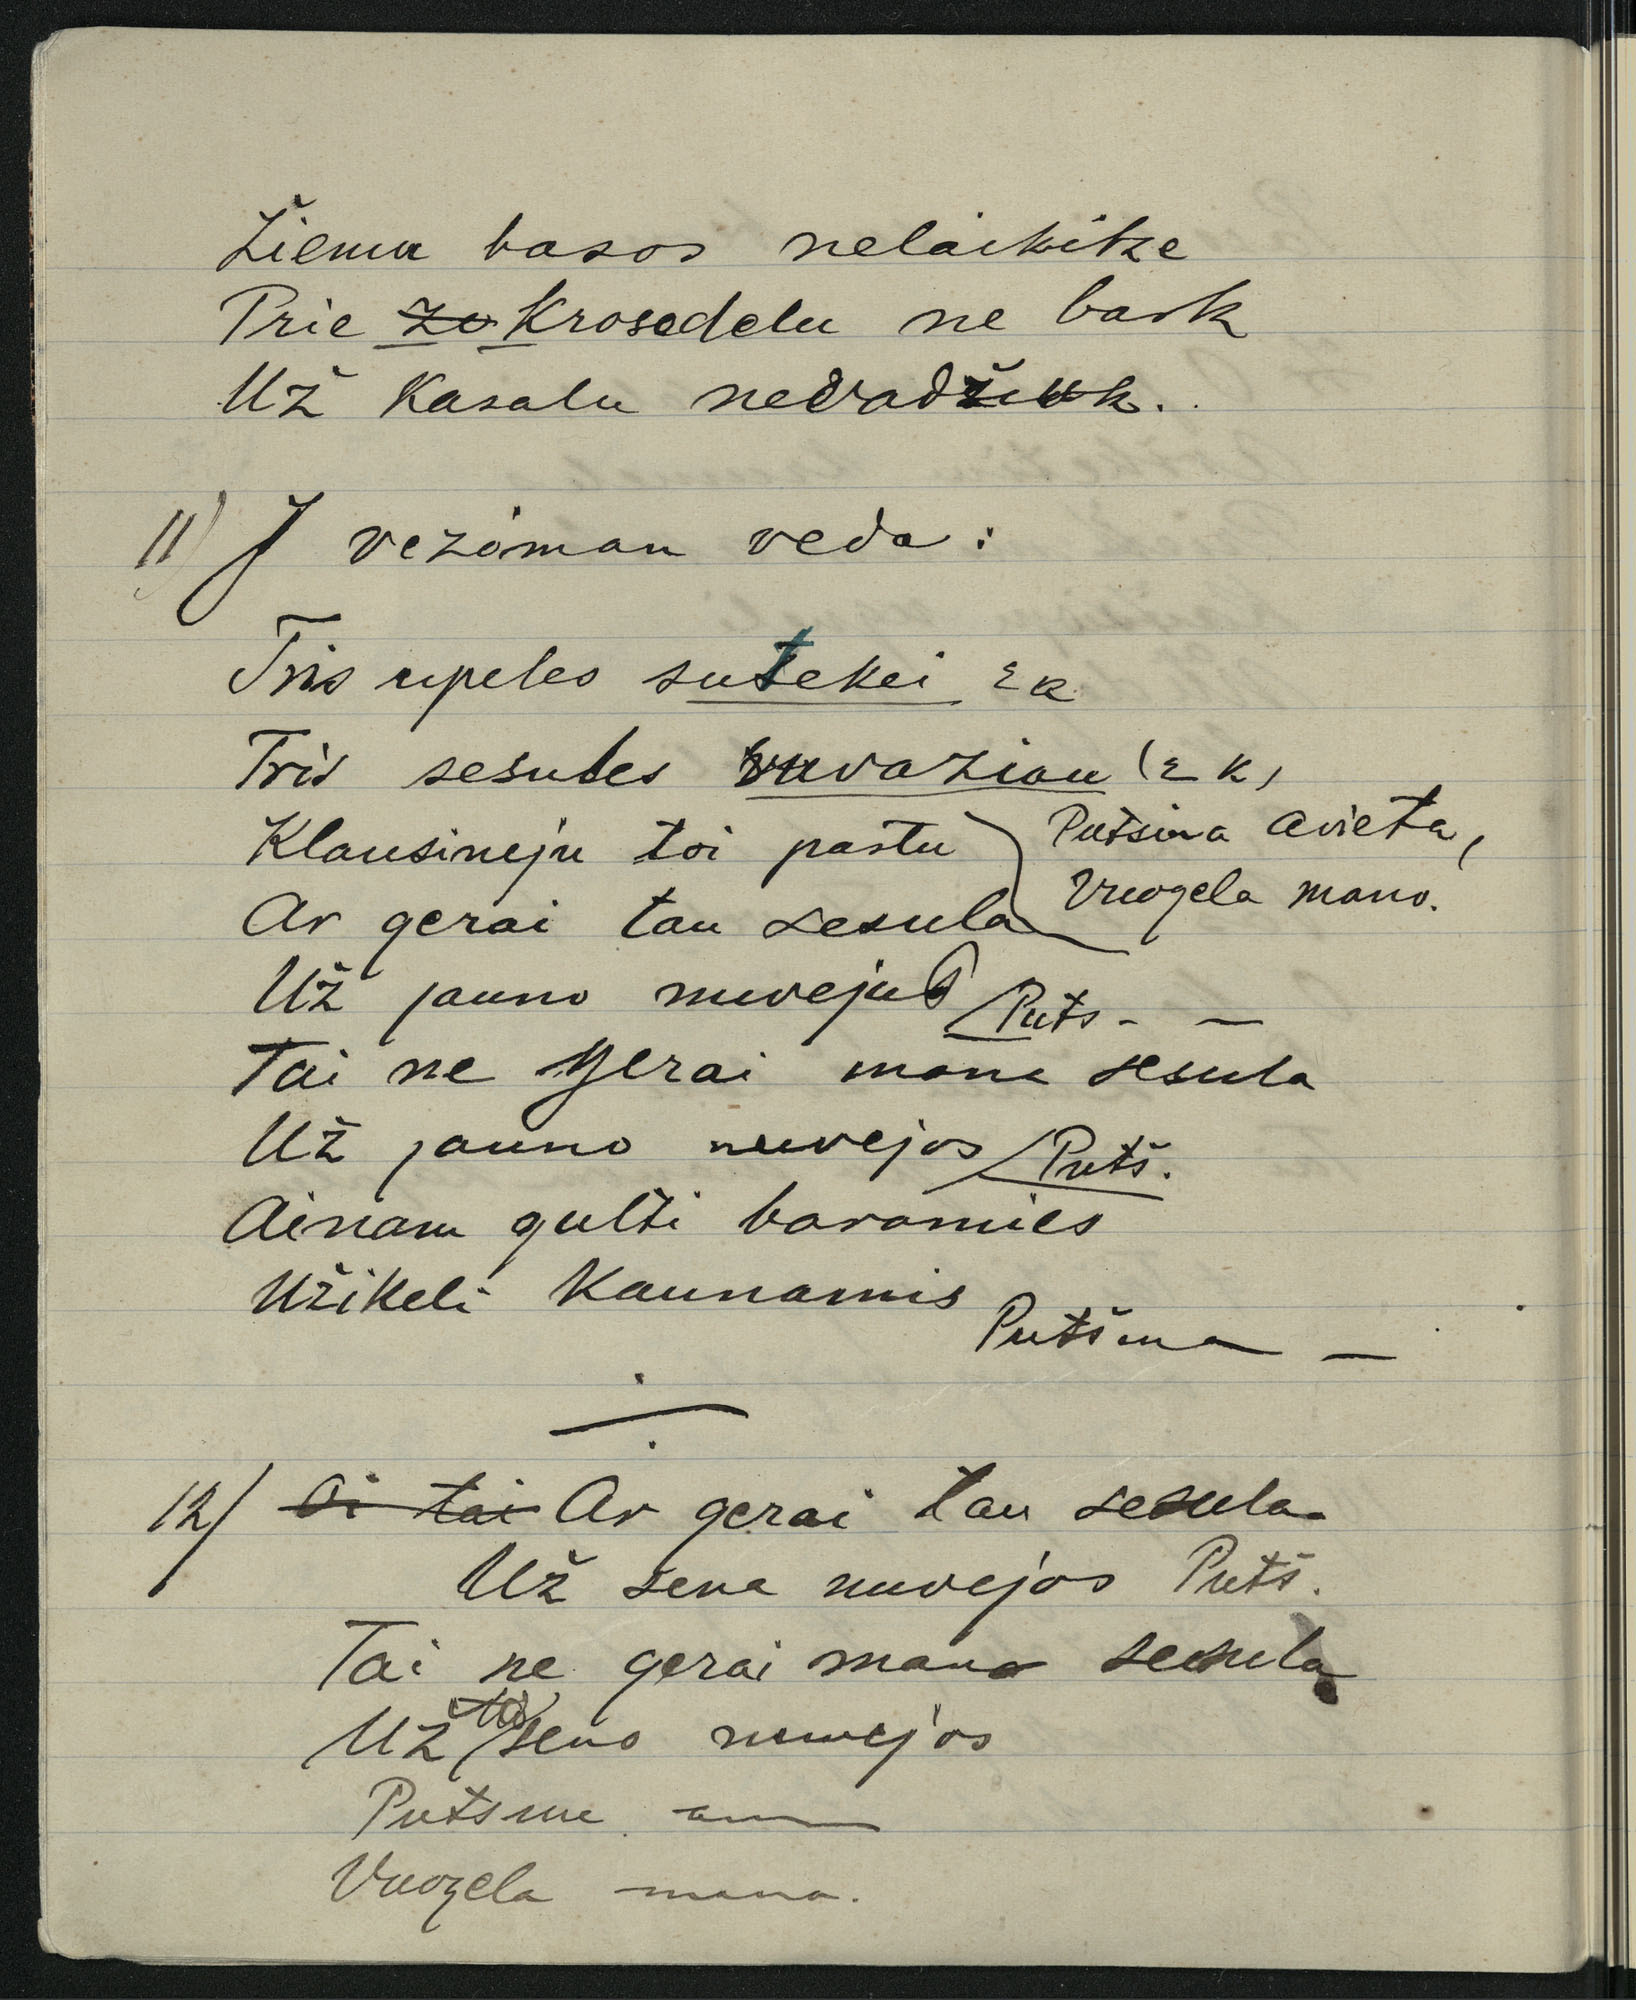 Žiema basos nelaikitke
Prie zo Krosedelu ne bark
Už Kasalu nevadžiuk.
11) J vezöman veda:
Tris upeles sutekei 2 k
Tris sesutes suvaziau (2 k)
Klausineju toi pastu
Putsina avieta,
Ar gerai tau sesula
Vuogela mano.
Už jauno nuvejus Puts - —
Tai ne gerai mano sesula
Už jauno nuvejos Putš.
Ainam gulti baramies
Užikeli Kaunamis
Putšina —
12) Oi tai Ar gerai tau sesula
Už sena nuvejos Putš.
Tai ne gerai mano sesula
Už seno nuvejos
Putsine a
Vuogela mano.